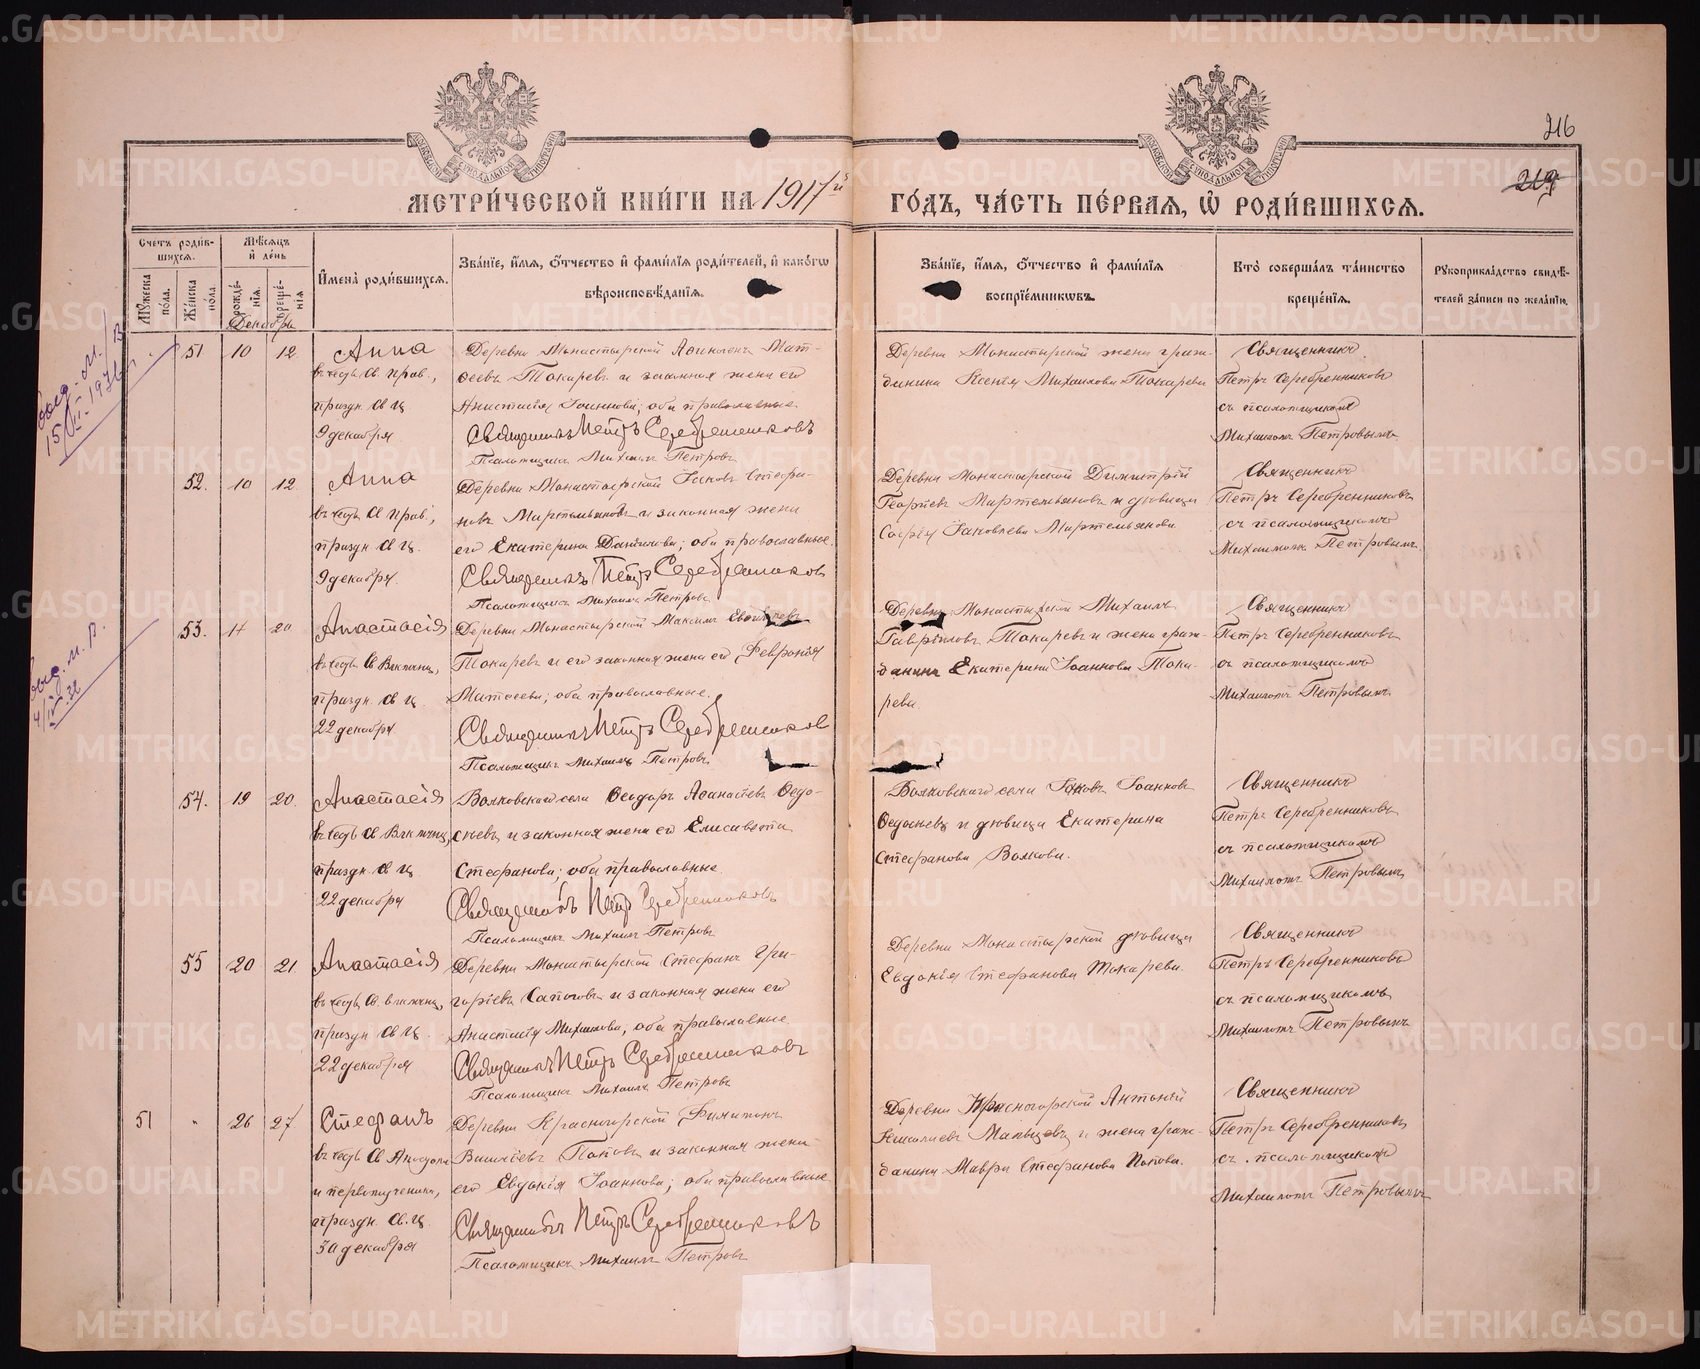 216
МЕТРИ́ЧЕСКОЙ КНИ́ГИ НА 1917й ГО́ДЪ, ЧА́СТЬ ПЕ́РВАЯ, Ѡ РОДИ́ВШИХСЯ.
Счетъ роди́в-
шихся.
Мѣ́сяцъ
и де́нь
Мужеска по́ла.
Же́нска по́ла
рожде́-
нія.
креще́-
нія
Имена̀ роди́вшихся.
Зва́ніе, и́мя, о́тчество и фами́лія роди́телей, и како́гѡ
вѣроисповѣ́данія.
Зва́ніе, и́мя, о́тчество и фами́лія
воспріе́мникѡвъ.
Кто̀ соверша́лъ та́инство
креще́нія.
Рукоприкла́дство свидѣ́-
телей за́писи по жела́нію.
Декабрь
51 10 12 Анна
въ честь св. прав.,
праздн. св. ц.
9 декабря
Деревни Монастырской Мат-
ѳеевъ Токаревъ и законная жена его
Анастасія Іоаннова; оба православные.
Священникъ Петръ Серебренниковъ
Псаломщикъ Михаилъ Петровъ
Деревни Монастырской жена граж-
данина Ксенія Михаилова Токарева
Священникъ
Петръ Серебренниковъ
съ псаломщикомъ
Михаиломъ Петровымъ
52. 10 12 Анна
въ честь св. прав.,
праздн. св. ц.
9 декабря.
Деревни Монастырской Іаковъ Стефа-
новъ Мартемьяновъ и законная жена
его Екатерина; оба православные.
Священникъ Петръ Серебренниковъ
Псаломщикъ Михаилъ Петровъ
Деревни Монастырской Димитрій
Георгіевъ Мартемьяновъ и дѣвица
Софія Іаковлева Мартемьянова
Священникъ
Петръ Серебренниковъ
съ псаломщикомъ
Михаиломъ Петровымъ.
53. 20 Анастасія
въ честь св. Вмчницы,
праздн. св. ц.
22 декабря.
Деревни Монастырской Максимъ
Токаревъ и его законная жена его Февронія
Матѳеева; оба православные.
Священникъ Петръ Серебренниковъ
Псаломщикъ Михаилъ Петровъ.
Деревни Монастырской Михаилъ
Гавріиловъ Токаревъ и жена граж-
данина Екатерина Іоаннова Тока-
рева
Священникъ
Петръ Серебренниковъ
съ псаломщикомъ
Михаиломъ Петровымъ.
54. 19 20. Анастасія
въ честь св. Вмкчниц,
праздн. св. ц.
22 декабря
Волковскаго села Ѳеодоръ Аѳанасіевъ Ѳедо-
сѣевъ и законная жена его Елисавета
Стефанова; оба православные.
Священникъ Петръ Серебренниковъ
Псаломщикъ Михаилъ Петровъ
Волковскаго села Іаковъ Іоанновъ
Ѳедосѣевъ и дѣвица Екатерина
Стефанова Волкова.
Священникъ
Петръ Серебренниковъ
съ псаломщикомъ
Михаиломъ Петровымъ
55 20 21. Анастасія
въ честь св. вмкчниц,
праздн. св. ц.
22 декабря
Деревни Монастырской Стефанъ Гри-
горіевъ Сапоговъ и законная жена его
Анастасія Михаилова, оба православные.
Священникъ Петръ Серебренниковъ
Псаломщикъ Михаилъ Петровъ
Деревни Монастырской дѣвица
Евдокія Стефанова Токарева.
Священникъ
Петръ Серебренниковъ
съ псаломщикомъ
Михаиломъ Петровымъ
51 " 26 27 Стефанъ
въ честь св. Апостола
и первомученика,
праздн. св. ц.
30 декабря
Деревни Красногорской Филиппъ
Василіевъ Поповъ и законная жена
его Евдокія Іоаннова; оба православные
Священникъ Петръ Серебренниковъ
Псаломщикъ Михаилъ Петровъ
Деревни Красногорской Антоній
Николаевъ Мальцевъ и жена граж-
данина Мавра Стефанова Попова.
Священникъ
Петръ Серебренниковъ
съ псаломщикомъ
Михаиломъ Петровымъ
METRIKI.GASO-URAL.RU